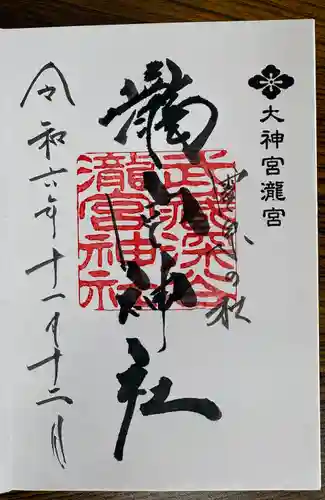 大神宮瀧宮
瀧宮神社
武蔵深谷
瀧宮神社
令和六年十一月十二日